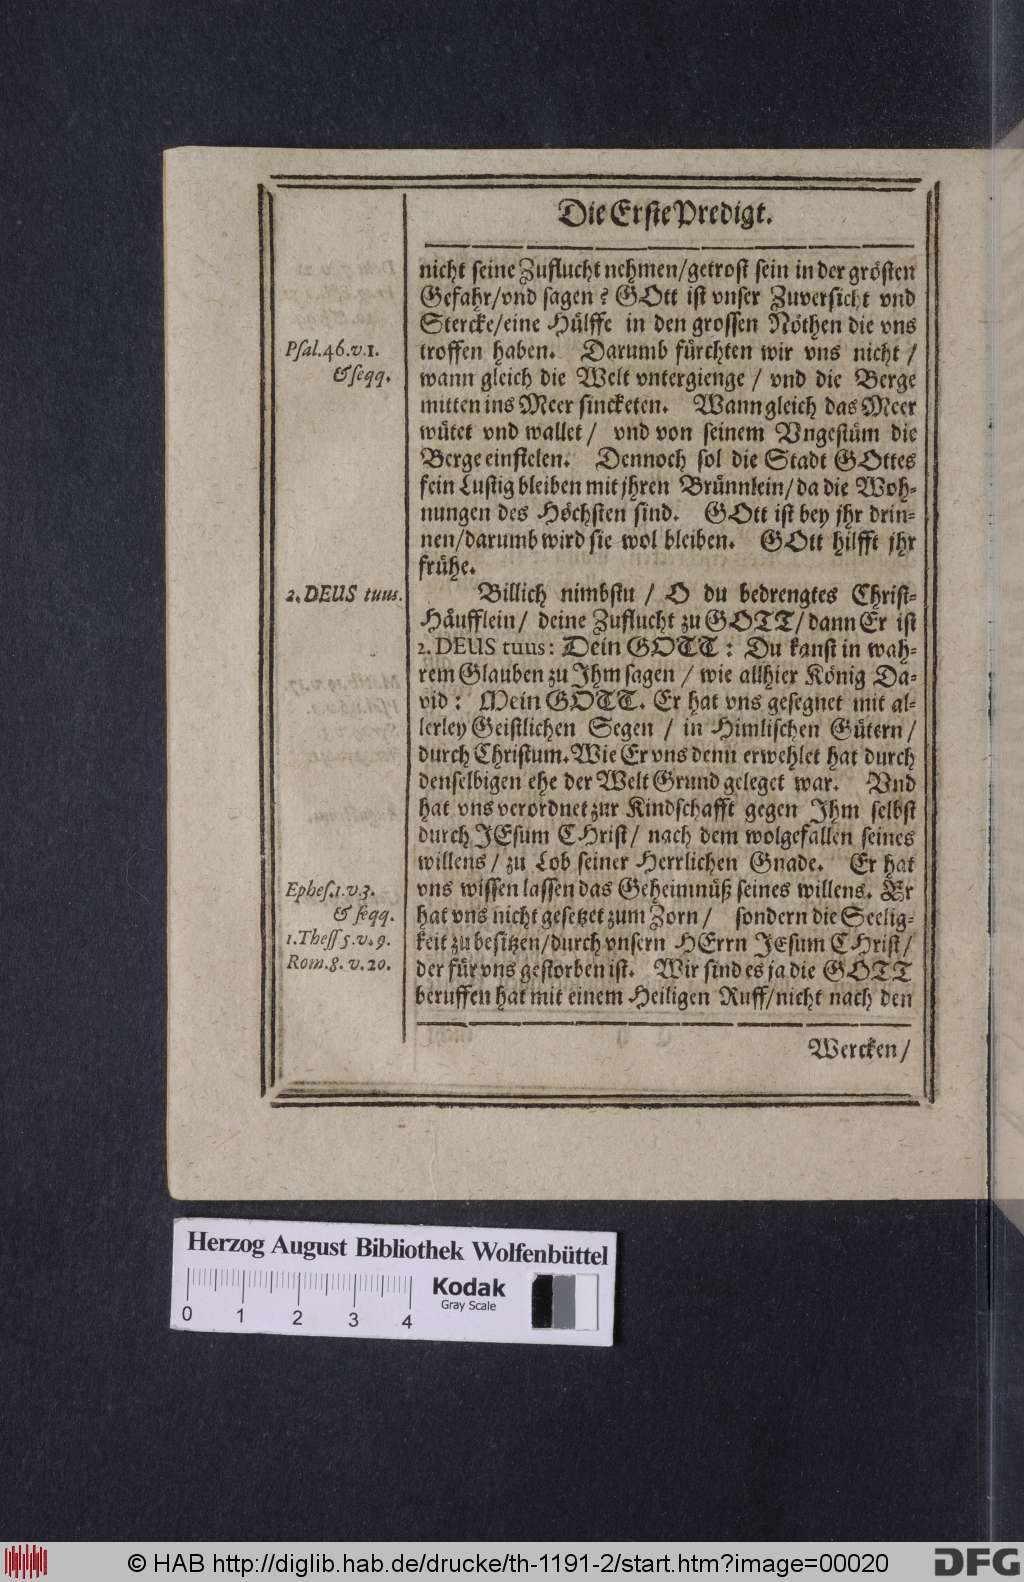 Die Erste Predigt.
nicht seine Zuflucht nehmen/getrost sein in der grösten
Gefahr/vnd sagen? GOtt ist vnser Zuversicht vnd
Stercke/eine Hülffe in den grossen Nöthen die vns
troffen haben. Darumb fürchten wir vns nicht /
wann gleich die Welt vntergienge / vnd die Berge
mitten ins Meer sincketen. Wann gleich das Meer
wütet vnd wallet / vnd von seinem Vngestüm die
Berge einfielen. Dennoch sol die Stadt GOttes
fein Lustig bleiben mit jhren Brünnlein/da die Woh-
nungen des Höchsten sind. GOtt ist bey jhr drin-
nen/darumb wird sie wol bleiben. GOtt hilfft jhr
frühe.
Psal.46.v.1.
& seqq.
Billich nimbstu / O du bedrengtes Christ-
Häufflein / deine Zuflucht zu GOTT/dann Er ist
2. DEUS tuus: Dein GOTT: Du kanst in wah-
rem Glauben zu Ihm sagen / wie allhier König Da-
vid: Mein GOTT. Er hat vns gesegnet mit al-
lerley Geistlichen Segen / in Himlischen Gütern /
durch Christum. Wie Er vns denn erwehlet hat durch
denselbigen ehe der Welt Grund geleget war. Vnd
hat vns verordnet zur Kindschafft gegen Ihm selbst
durch JEsum CHrist / nach dem wolgefallen seines
willens / zu Lob seiner Herrlichen Gnade. Er hat
vns wissen lassen das Geheimnüß seines willens. Er
hat vns nicht gesetzet zum Zorn / sondern die Seelig-
keit zu besitzen/durch vnsern HErrn JEsum CHrist /
der für vns gestorben ist. Wir sind es ja die GOTT
beruffen hat mit einem Heiligen Ruff/nicht nach den
2. DEUS tuus.
Ephes.1.v.3.
& seqq.
1.Thess 5.v.9.
Rom.8.v.20.
Wercken /
Herzog August Bibliothek Wolfenbüttel
0 1 2 3 4
Kodak
Gray Scale
© HAB http://diglib.hab.de/drucke/th-1191-2/start.htm?image=00020
DFG